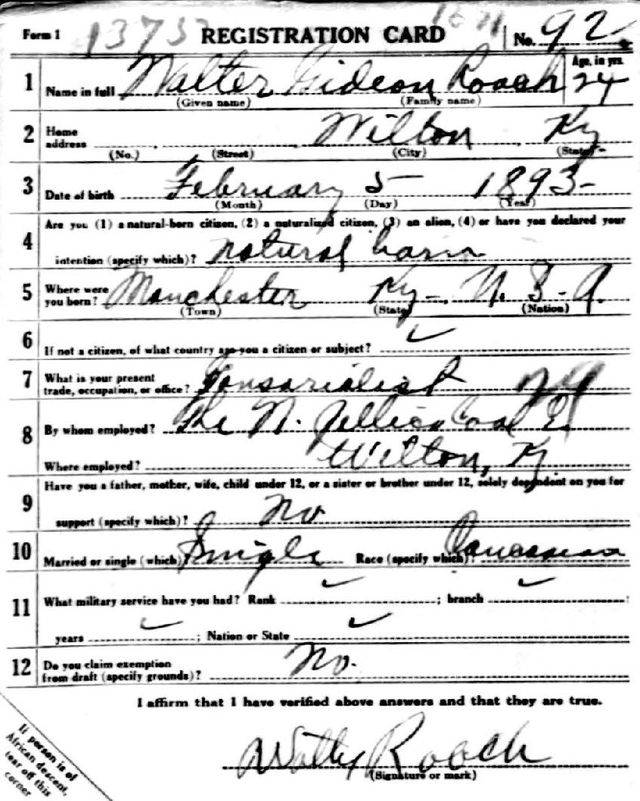 Form 1 13757 REGISTRATION CARD No. 92
1 Name in full Walter Gideon Roach Age, in yrs. 24
(Given name) (Family name)
2 Home address Wilton Ky
(No.) (Street) (City) (State)
3 Date of birth February 5 1893
(Month) (Day) (Year)
4 Are you (1) a natural-born citizen, (2) a naturalized citizen, (3) an alien, (4) or have you declared your
intention (specify which)? natural born
5 Where were you born? Manchester Ky U. S. A.
(Town) (State) (Nation)
6 If not a citizen, of what country are you a citizen or subject? ✓
7 What is your present trade, occupation, or office? Tonsorialist
8 By whom employed? The N. Jellico Coal
Where employed? Wilton, Ky
9 Have you a father, mother, wife, child under 12, or a sister or brother under 12, solely dependent on you for
support (specify which)? No
10 Married or single (which)? Single Race (specify which)? Caucasian
11 What military service have you had? Rank ✓ ; branch ✓
years ✓ ; Nation or State ✓
12 Do you claim exemption from draft (specify grounds)? No.
I affirm that I have verified above answers and that they are true.
Roach
(Signature or mark)
If person is of
African descent,
tear off this
corner